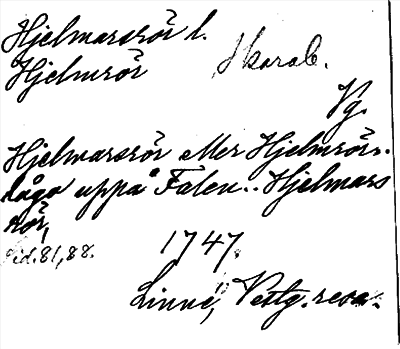 Hjelmarsrör l.
Hjelmrör Skarab.
Vg.
Hjelmarsrör eller Hjelmrör..
lågo uppå Falen.. Hjelmars
rör,
sid. 81, 88.
1747.
Linné, Vestg. resa.